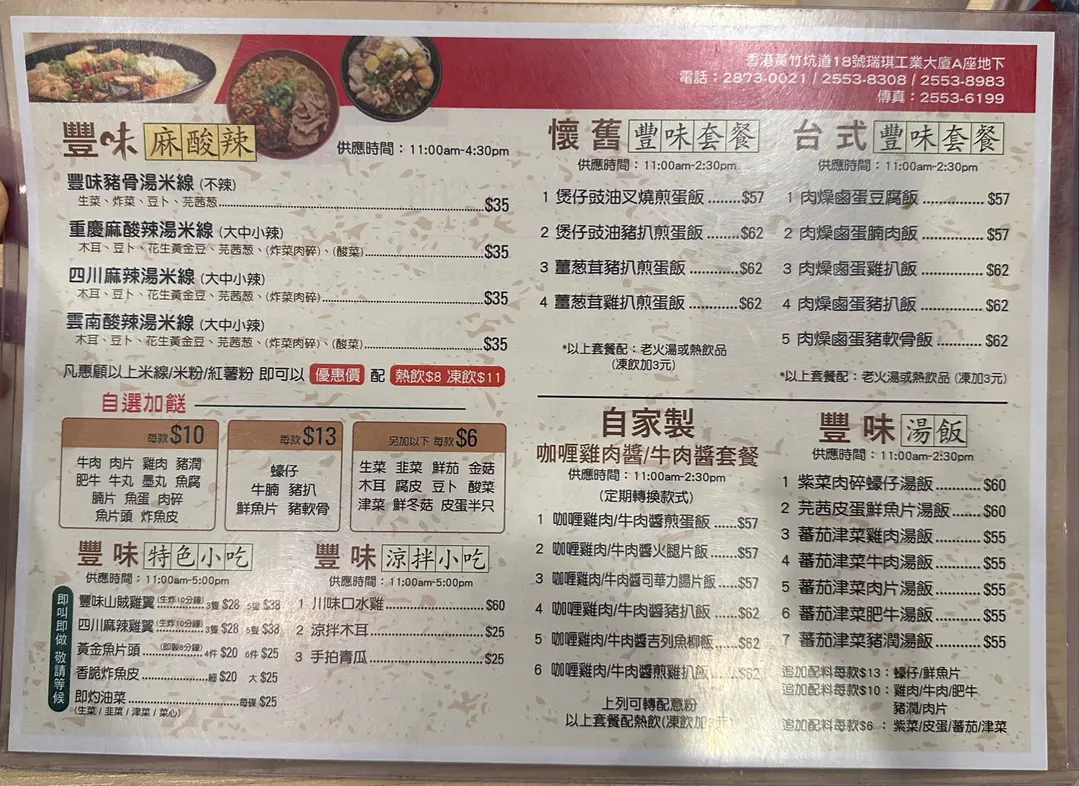 香港黃竹坑道18號瑞琪工業大廈A座地下
電話：2873-0021 / 2553-8308 / 2553-8983
傳真：2553-6199
豐味 麻酸辣 供應時間：11:00am-4:30pm
豐味豬骨湯米線 (不辣)
生菜、炸菜、豆卜、芫茜葱 $35
重慶麻酸辣湯米線 (大中小辣)
木耳、豆卜、花生黃金豆、芫茜葱、(炸菜肉碎)、(酸菜) $35
四川麻辣湯米線 (大中小辣)
木耳、豆卜、花生黃金豆、芫茜葱、(炸菜肉碎) $35
雲南酸辣湯米線 (大中小辣)
木耳、豆卜、花生黃金豆、芫茜葱、(炸菜肉碎)、(酸菜) $35
凡惠顧以上米線/米粉/紅薯粉 即可以 優惠價 配 熱飲$8 凍飲$11
自選加餸
每款$10
牛肉 肉片 雞肉 豬潤
肥牛 牛丸 墨丸 魚腐
腩片 魚蛋 肉碎
魚片頭 炸魚皮
每款$13
蠔仔
牛腩 豬扒
鮮魚片 豬軟骨
另加以下 每款$6
生菜 韭菜 鮮茄 金菇
木耳 腐皮 豆卜 酸菜
津菜 鮮冬菇 皮蛋半只
豐味 特色小吃
供應時間：11:00am-5:00pm
即叫即做 敬請等候
豐味山賊雞翼 (生炸10分鐘) 3隻 $28 5隻 $38
四川麻辣雞翼 (生炸10分鐘) 3隻 $28 5隻 $38
黃金魚片頭 (即製8分鐘) 4件 $20 6件 $25
香脆炸魚皮 細 $20 大 $25
即灼油菜 每碟 $25
(生菜 / 韭菜 / 津菜 / 菜心)
豐味 涼拌小吃
供應時間：11:00am-5:00pm
1 川味口水雞 $60
2 涼拌木耳 $25
3 手拍青瓜 $25
懷舊 豐味套餐
供應時間：11:00am-2:30pm
1 煲仔豉油叉燒煎蛋飯 $57
2 煲仔豉油豬扒煎蛋飯 $62
3 薑葱茸豬扒煎蛋飯 $62
4 薑葱茸雞扒煎蛋飯 $62
*以上套餐配：老火湯或熱飲品
(凍飲加3元)
台式 豐味套餐
供應時間：11:00am-2:30pm
1 肉燥鹵蛋豆腐飯 $57
2 肉燥鹵蛋腩肉飯 $57
3 肉燥鹵蛋雞扒飯 $62
4 肉燥鹵蛋豬扒飯 $62
5 肉燥鹵蛋豬軟骨飯 $62
*以上套餐配：老火湯或熱飲品 (凍加3元)
自家製
咖喱雞肉醬/牛肉醬套餐
供應時間：11:00am-2:30pm
(定期轉換款式)
1 咖喱雞肉/牛肉醬煎蛋飯 $57
2 咖喱雞肉/牛肉醬火腿片飯 $57
3 咖喱雞肉/牛肉醬司華力腸片飯 $57
4 咖喱雞肉/牛肉醬豬扒飯 $62
5 咖喱雞肉/牛肉醬吉列魚柳飯 $62
6 咖喱雞肉/牛肉醬煎雞扒飯 $62
上列可轉配意粉
以上套餐配熱飲(凍飲加3元)
豐味 湯飯
供應時間：11:00am-2:30pm
1 紫菜肉碎蠔仔湯飯 $60
2 芫茜皮蛋鮮魚片湯飯 $60
3 蕃茄津菜雞肉湯飯 $55
4 蕃茄津菜牛肉湯飯 $55
5 蕃茄津菜肉片湯飯 $55
6 蕃茄津菜肥牛湯飯 $55
7 蕃茄津菜豬潤湯飯 $55
追加配料每款$13：蠔仔/鮮魚片
追加配料每款$10：雞肉/牛肉/肥牛
豬潤/肉片
追加配料每款$6：紫菜/皮蛋/蕃茄/津菜